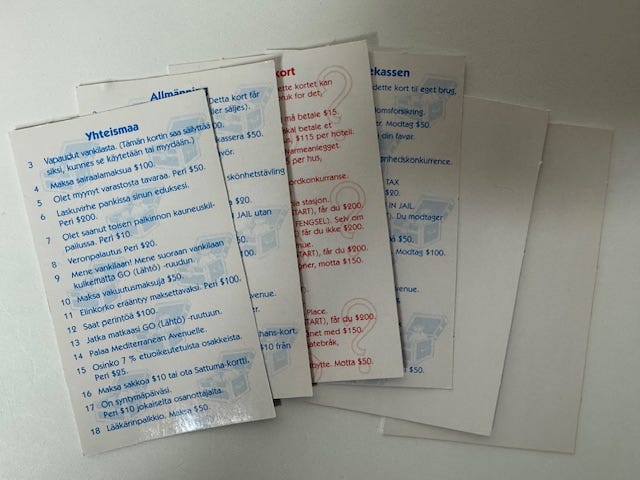 Yhteismaa
3 Vapaudut vankilasta. (Tämän kortin saa säilyttää
siksi, kunnes se käytetään tai myydään.)
4 Maksa sairaalamaksua $100.
5 Olet myynyt varastosta tavaraa. Peri $50.
6 Laskuvirhe pankissa sinun eduksesi.
Peri $200.
7 Olet saanut toisen palkinnon kauneuskil-
pailussa. Peri $10.
8 Veronpalautus Peri $20.
9 Mene vankilaan! Mene suoraan vankilaan
kulkematta GO (Lähtö) -ruudun.
10 Maksa vakuutusmaksuja $50.
11 Elinkorko erääntyy maksettavaksi. Peri $100.
12 Saat perintöä $100.
13 Jatka matkaasi GO (Lähtö) -ruutuun.
14 Palaa Mediterranean Avenuelle.
15 Osinko 7 % etuoikeutetuista osakkeista.
Peri $25.
16 Maksa sakkoa $10 tai ota Sattuma-kortti.
17 On syntymäpäiväsi.
Peri $10 jokaiselta osanottajalta.
18 Lääkärinpalkkio. Maksa $50.
Allmänni
Detta kort får
ler säljes).
kassera $50.
vör.
skönhetstävling
$20.
JAIL utan
$100.
hans-kort.
$10 från
kort
dette kortet kan
bruk for det,
må betale $15.
kal betale et
, $115 per hotell.
varmeanlegget.
per hus,
ordkonkurranse.
a stasjon.
TART), får du $200.
(FENGSEL). Selv om
O) får du ikke $200.
nue.
TART), får du $200.
oner, motta $150.
Place.
TART), får du $200.
net med $150.
atebråk,
bytte. Motta $50.
ekassen
dette kort til eget brug,
domsforsikring.
r. Modtag $50.
din favør.
nhedskonkurrence.
TAX
$20.
IN JAIL.
). Du modtager
på $50.
Modtag $100.
venue.
$50.